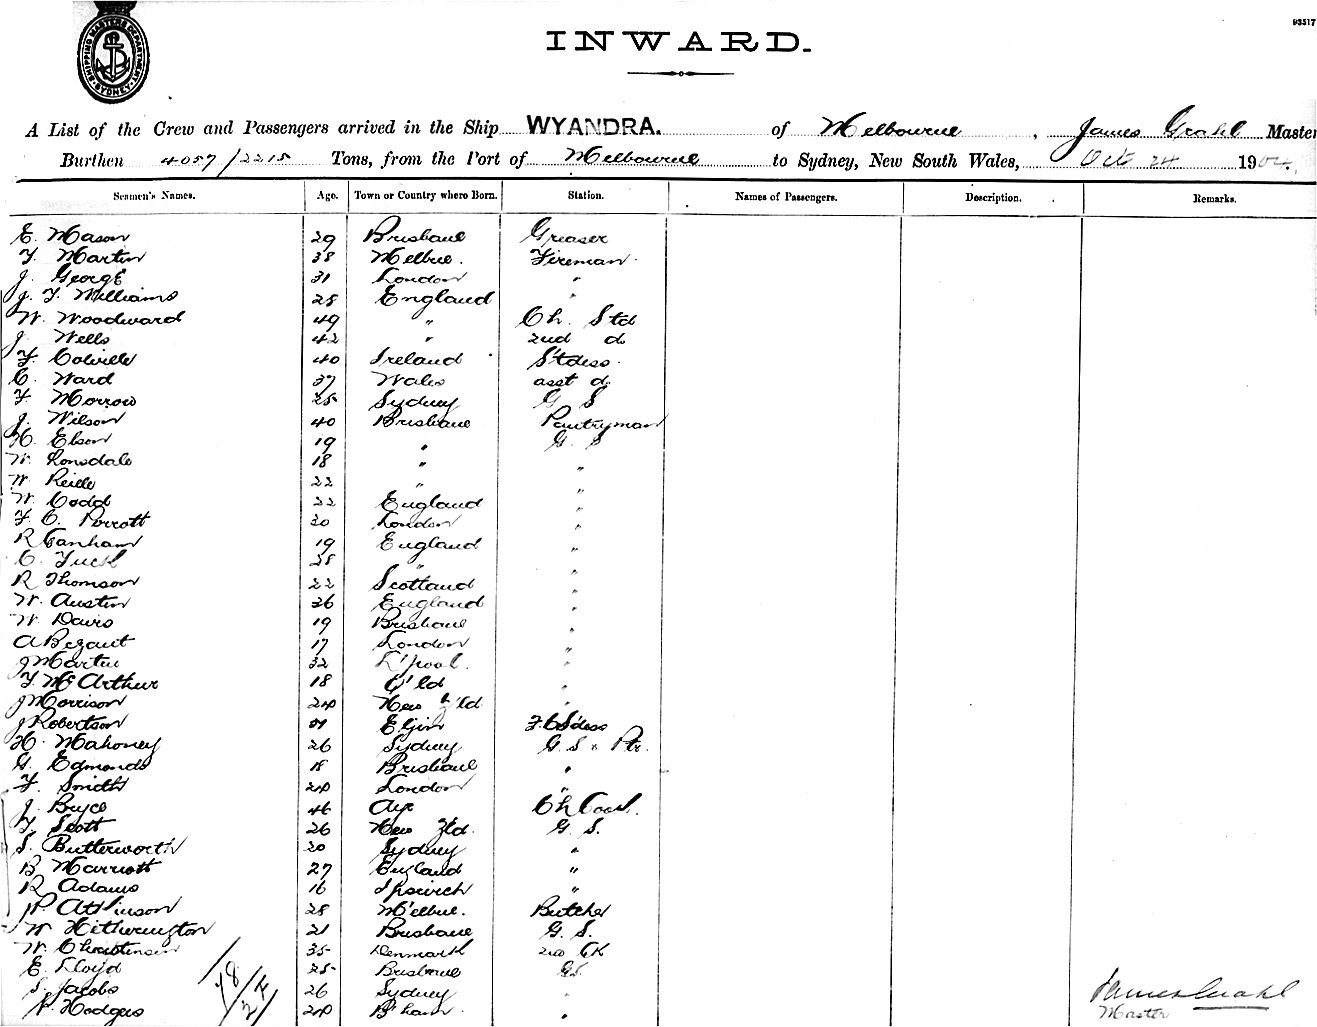 93517
SHIPPING MASTERS DEPARTMENT SYDNEY
INWARD.
A List of the Crew and Passengers arrived in the Ship WYANDRA. of Melbourne, James Grahl Master
Burthen 4057/2215 Tons, from the Port of Melbourne to Sydney, New South Wales, Oct 24 190
Seamen's Names. Age. Town or Country where Born. Station. Names of Passengers. Description. Remarks.
E. Mason 29 Brisbane Greaser
F. Martin 38 Melbne. Fireman
J. George 31 London "
J. F. Williams 28 England "
W. Woodward 49 " Ch. Std
J. Wells 42 " 2nd d.
F. Colville 40 Ireland Stdess.
C. Ward 37 Wales asst d.
F. Morrow 25 Sydney G S
J. Wilson 40 Brisbane Pantryman
H. Elson 19 " G. S
W. Lonsdale 18 " "
W. 22 " "
W. Codd 22 England "
F. C. Perrott 20 London "
R Canham 19 England "
C. Tuck 28 " "
R Thomson 22 Scotland "
W. Austin 26 England "
W Davis 19 Brisbane "
A Bezant 17 London "
J Martin 32 L'pool. "
F. McArthur 18 Q'ld "
J Morrison 24 New Z'ld "
J Robertson Elgin F.C.S'dess
H. Mahoney 26 Sydney G. S. Ptr.
G. Edmonds 18 Brisbane "
F. Smith 24 London "
J. Bryce 46 Ayr Ch Cook.
F. Scott 26 New Zld. G S.
S. Butterworth 20 Sydney "
B Marriott 27 England "
R Adams 16 Ipswich "
P. Atkinson 28 M'elbne. Butcher
W Hetherington 21 Brisbane G. S.
W. Christensen 35 Denmark 2nd CK
E. Lloyd 25 Brisbane G.S.
S. Jacobs 26 Sydney "
Hodges 24 B'ham "
78/2F
James Grahl
Master